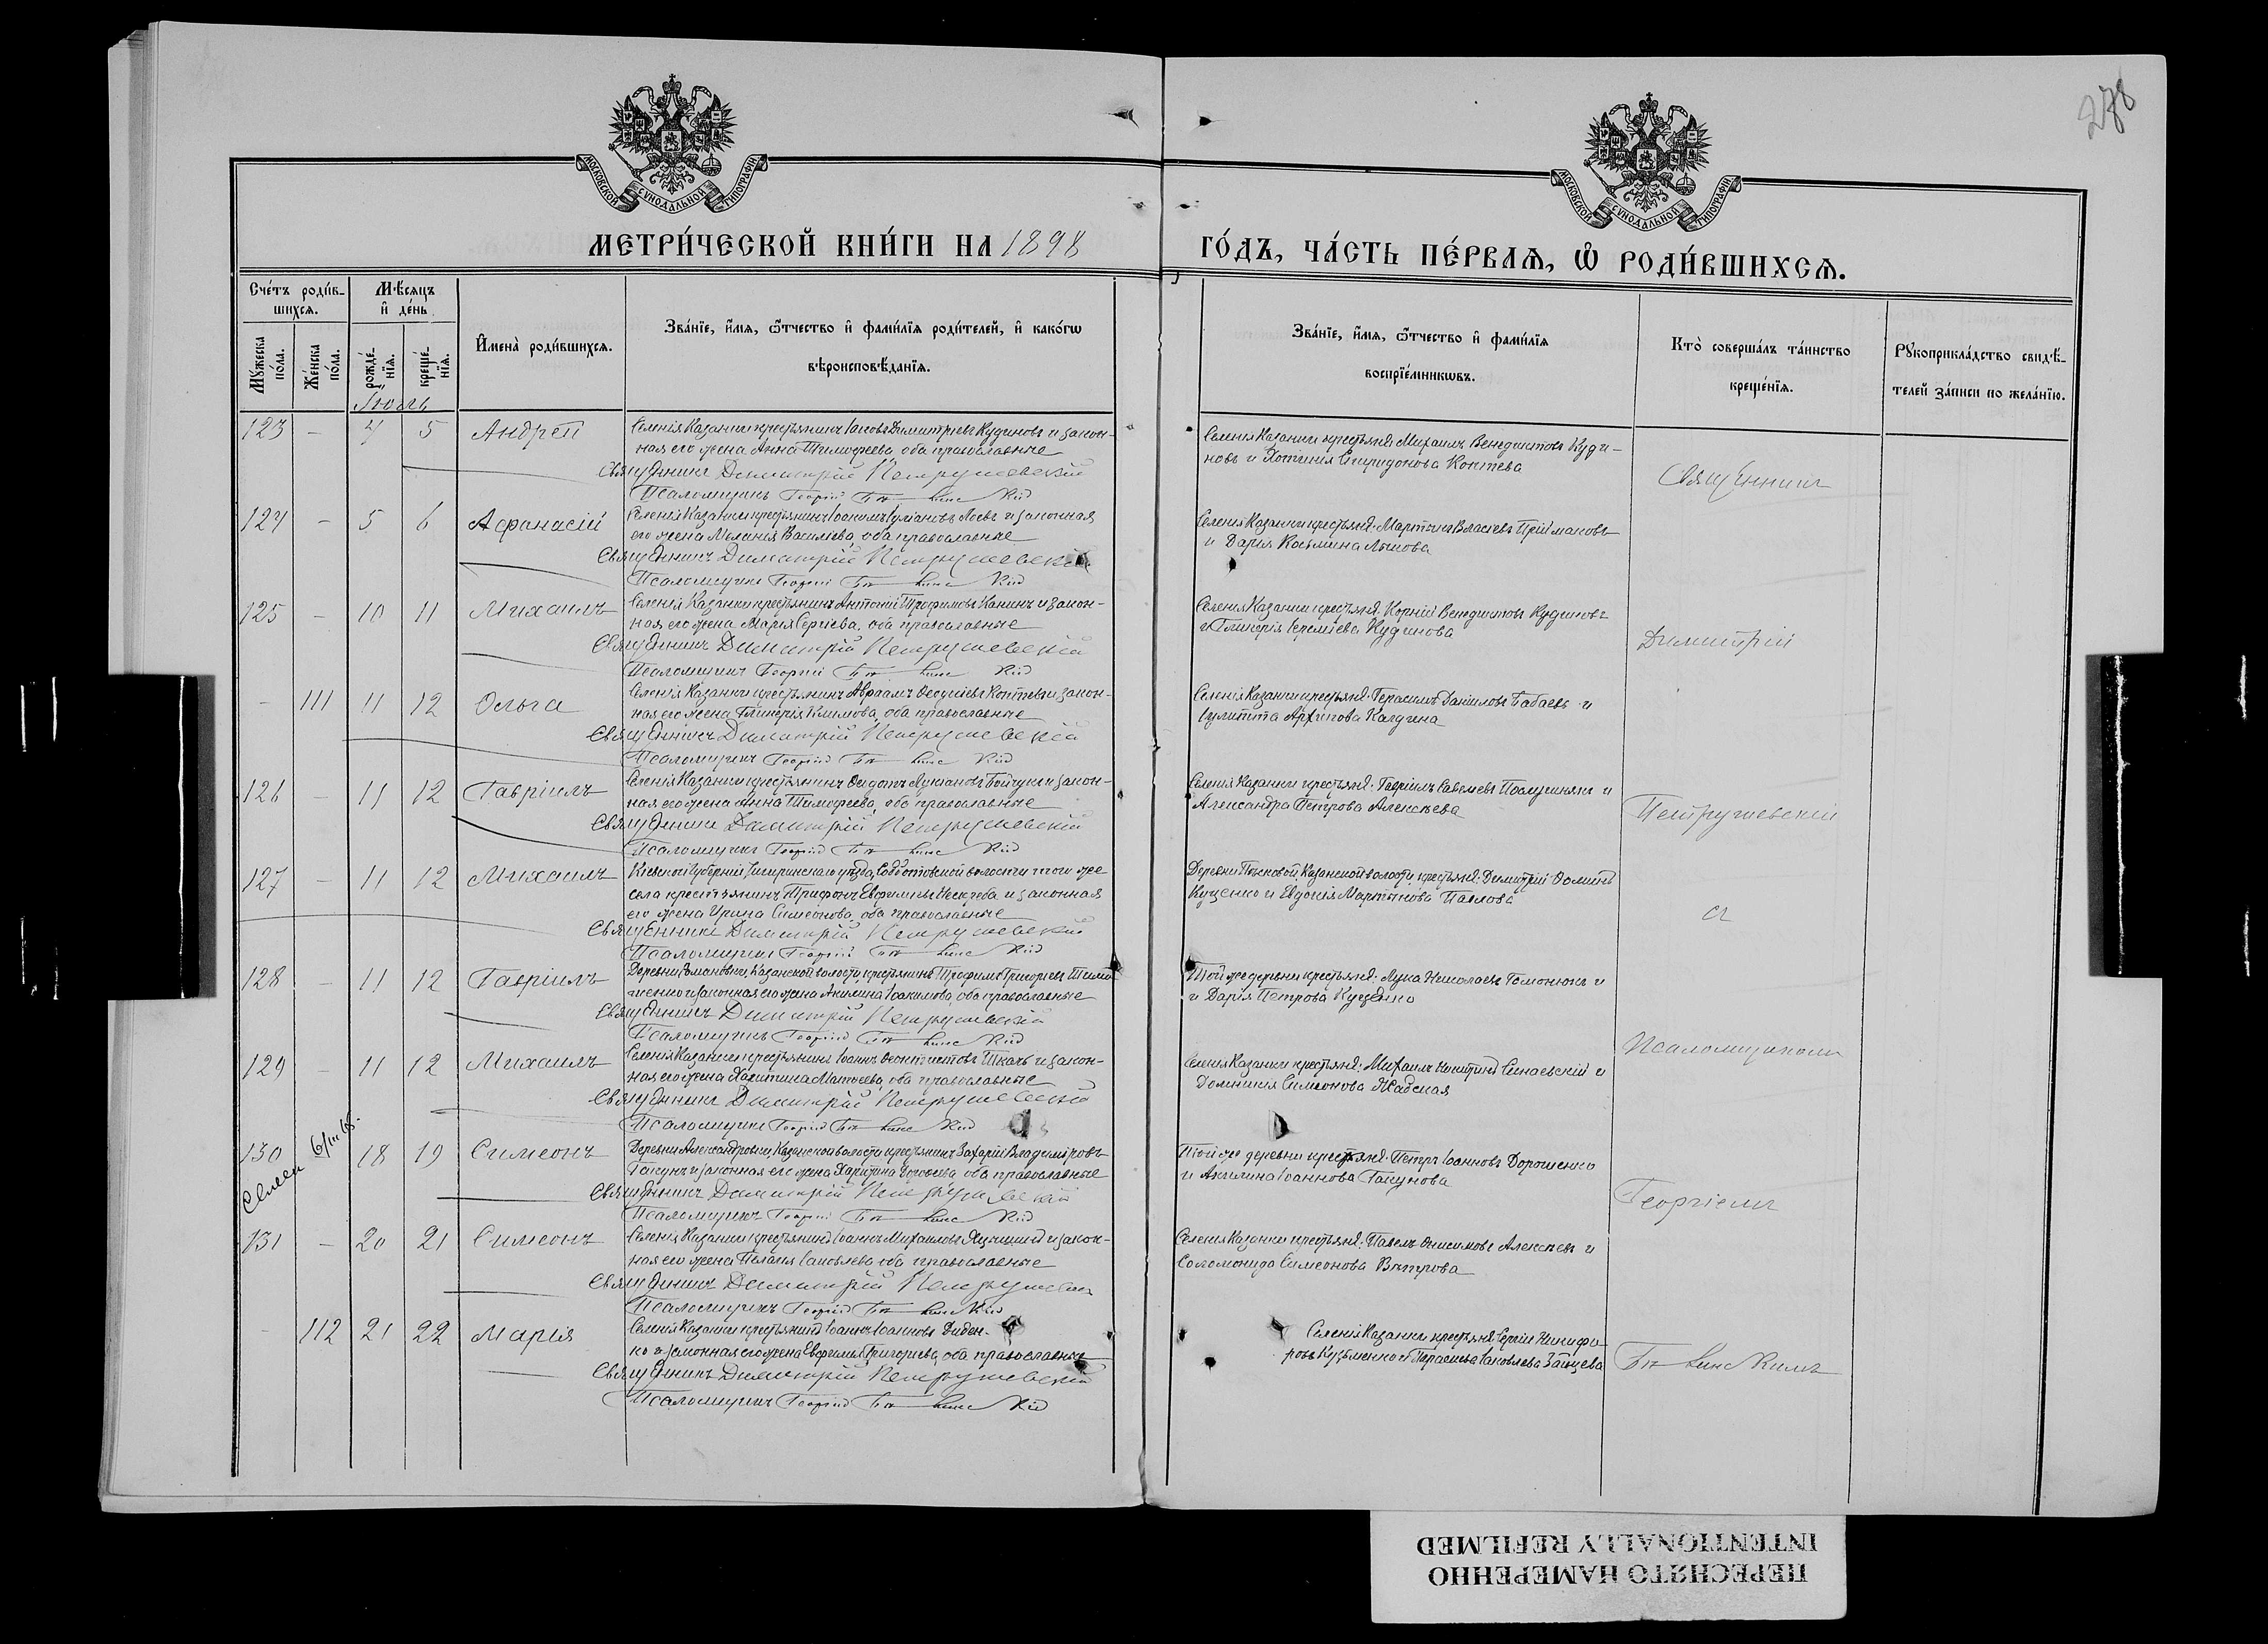 278
МОСКОВСКОЙ СѴНОДАЛЬНОЙ ТИПОГРАФІИ
МОСКОВСКОЙ СѴНОДАЛЬНОЙ ТИПОГРАФІИ
МЕТРИ́ЧЕСКОЙ КНИ́ГИ НА 1898
ГО́ДЪ, ЧА́СТЬ ПЕ́РВАѦ, Ѡ҆ РОДИ́ВШИХСѦ.
Сче́тъ роди́в-
шихсѧ.
Мꙋ́жеска по́ла.
Же́нска по́ла.
Мѣ́сѧцъ
и҆ де́нь
рожде́-нїѧ.
креще́-нїѧ.
И҆мена̀ роди́вшихсѧ.
Зва́нїе, и҆́мѧ, ѻ҆́тчество и҆ фами́лїѧ роди́телей, и҆ како́гѡ
вѣроисповѣ́данїѧ.
Зва́нїе, и҆́мѧ, ѻ҆́тчество и҆ фами́лїѧ
воспрїе́мникѡвъ.
Кто̀ соверша́лъ та́инство
креще́нїѧ.
Рꙋкоприкла́дство свидѣ́-
телей за́писи по жела́нїю.
Іюль
123 – 4 5 Андрей
Селенія Казанки крестьянинъ Іаковъ Димитріевъ Кудиновъ и закон-
ная его жена Анна Тимофеева, оба православные
Священникъ Димитрій Петрушевскій
Псаломщикъ Георгій
Селенія Казанки крестьяне: Михаилъ Венедиктовъ Куди-
новъ и Хотинія Спиридонова Коптева
Священникъ
124 – 5 6 Афанасій
Селенія Казанки крестьянинъ Іоакимъ Іуліановъ Лосевъ и законная
его жена Меланія Васильева, оба православные
Священникъ Димитрій Петрушевскій
Псаломщикъ Георгій
Селенія Казанки крестьяне: Мартинъ Власіевъ Пріймаковъ
и Дарія Косьмина
125 – 10 11 Михаилъ
Селенія Казанки крестьянинъ Антоній Трофимовъ Канинъ и закон-
ная его жена Марія Сергіева, оба православные
Священникъ Димитрій Петрушевскій
Псаломщикъ Георгій
Селенія Казанки крестьяне: Корній Венедиктовъ Кудиновъ
и Гликерія Іереміева Кудинова
Димитрій
– 111 11 12 Ольга
Селенія Казанки крестьянинъ Авраамъ Ѳеодосіевъ Коптевъ и закон-
ная его жена Гликерія Климова, оба православные
Священникъ Димитрій Петрушевскій
Псаломщикъ Георгій
Селенія Казанки крестьяне: Герасимъ Даніиловъ Бабаевъ и
Іулитта Архипова Калдина
126 – 11 12 Гавріилъ
Селенія Казанки крестьянинъ Ѳеодотъ Лукіановъ Бойчукъ и закон-
ная его жена Анна Тимофеева, оба православные
Священникъ Димитрій Петрушевскій
Псаломщикъ Георгій
Селенія Казанки крестьяне: Гавріилъ Савельевъ и
Александра Петрова Алексѣева
Петрушевскій
127 – 11 12 Михаилъ
Кіевской губерніи, Чигиринскаго уѣзда, Субботовской волости и того же
села крестьянинъ Трифонъ Евфиміевъ Нескреба и законная
его жена Ирина Симеонова, оба православные
Священникъ Димитрій Петрушевскій
Псаломщикъ Георгій
Деревни Песковой, Казанской волости, крестьяне: Димитрій Ѳоминъ
Куценко и Евдокія Мартынова Павлова
съ
128 – 11 12 Гавріилъ
Деревни Романовки, Казанской волости, крестьянинъ Трофимъ Григорьевъ Тимо-
шенко и законная его жена Акилина Іоакимова, оба православные
Священникъ Димитрій Петрушевскій
Псаломщикъ Георгій
Той же деревни крестьяне: Лука Николаевъ Гомонюкъ и
и Дарія Петрова Куценко
Псаломщикомъ
129 – 11 12 Михаилъ
Селенія Казанки крестьянинъ Іоаннъ Ѳеоктистовъ Ткачъ и закон-
ная его жена Харитина Матѳеева, оба православные
Священникъ Димитрій Петрушевскій
Псаломщикъ Георгій
Селенія Казанки крестьяне: Михаилъ Никитинъ Синаевскій и
Домникія Симеонова Жабская
130 18 19 Симеонъ
Семен
Деревни Александровки, Казанской волости крестьянинъ Захарій Владиміровъ
Гапунъ и законная его жена Харитина, оба православные
Священникъ Димитрій Петрушевскій
Псаломщикъ Георгій
Той же деревни крестьяне: Петръ Іоанновъ Дорошенко
и Акилина Іоаннова Гапунова
Георгіемъ
131 – 20 21 Симеонъ
Селенія Казанки крестьянинъ Іоаннъ Михаиловъ Яцышинъ и закон-
ная его жена Пелагія Іаковлева оба православные
Священникъ Димитрій Петрушевскій
Псаломщикъ Георгій
Селенія Казанки крестьяне: Павелъ Онисимовъ Алексѣевъ и
Соломонида Симеонова Вѣтрова
– 112 21 22 Марія
Селенія Казанки крестьянинъ Іоаннъ Іоанновъ Диден-
ко и законная его жена Евфимія Григорьева, оба православные
Священникъ Димитрій Петрушевскій
Псаломщикъ Георгій
Селенія Казанки крестьяне Сергій Никифо-
ровъ Кузьменко и Параскева Іаковлева Зайцева
ПЕРЕСНЯТО НАМЕРЕННО
INTENTIONALLY REFILMED